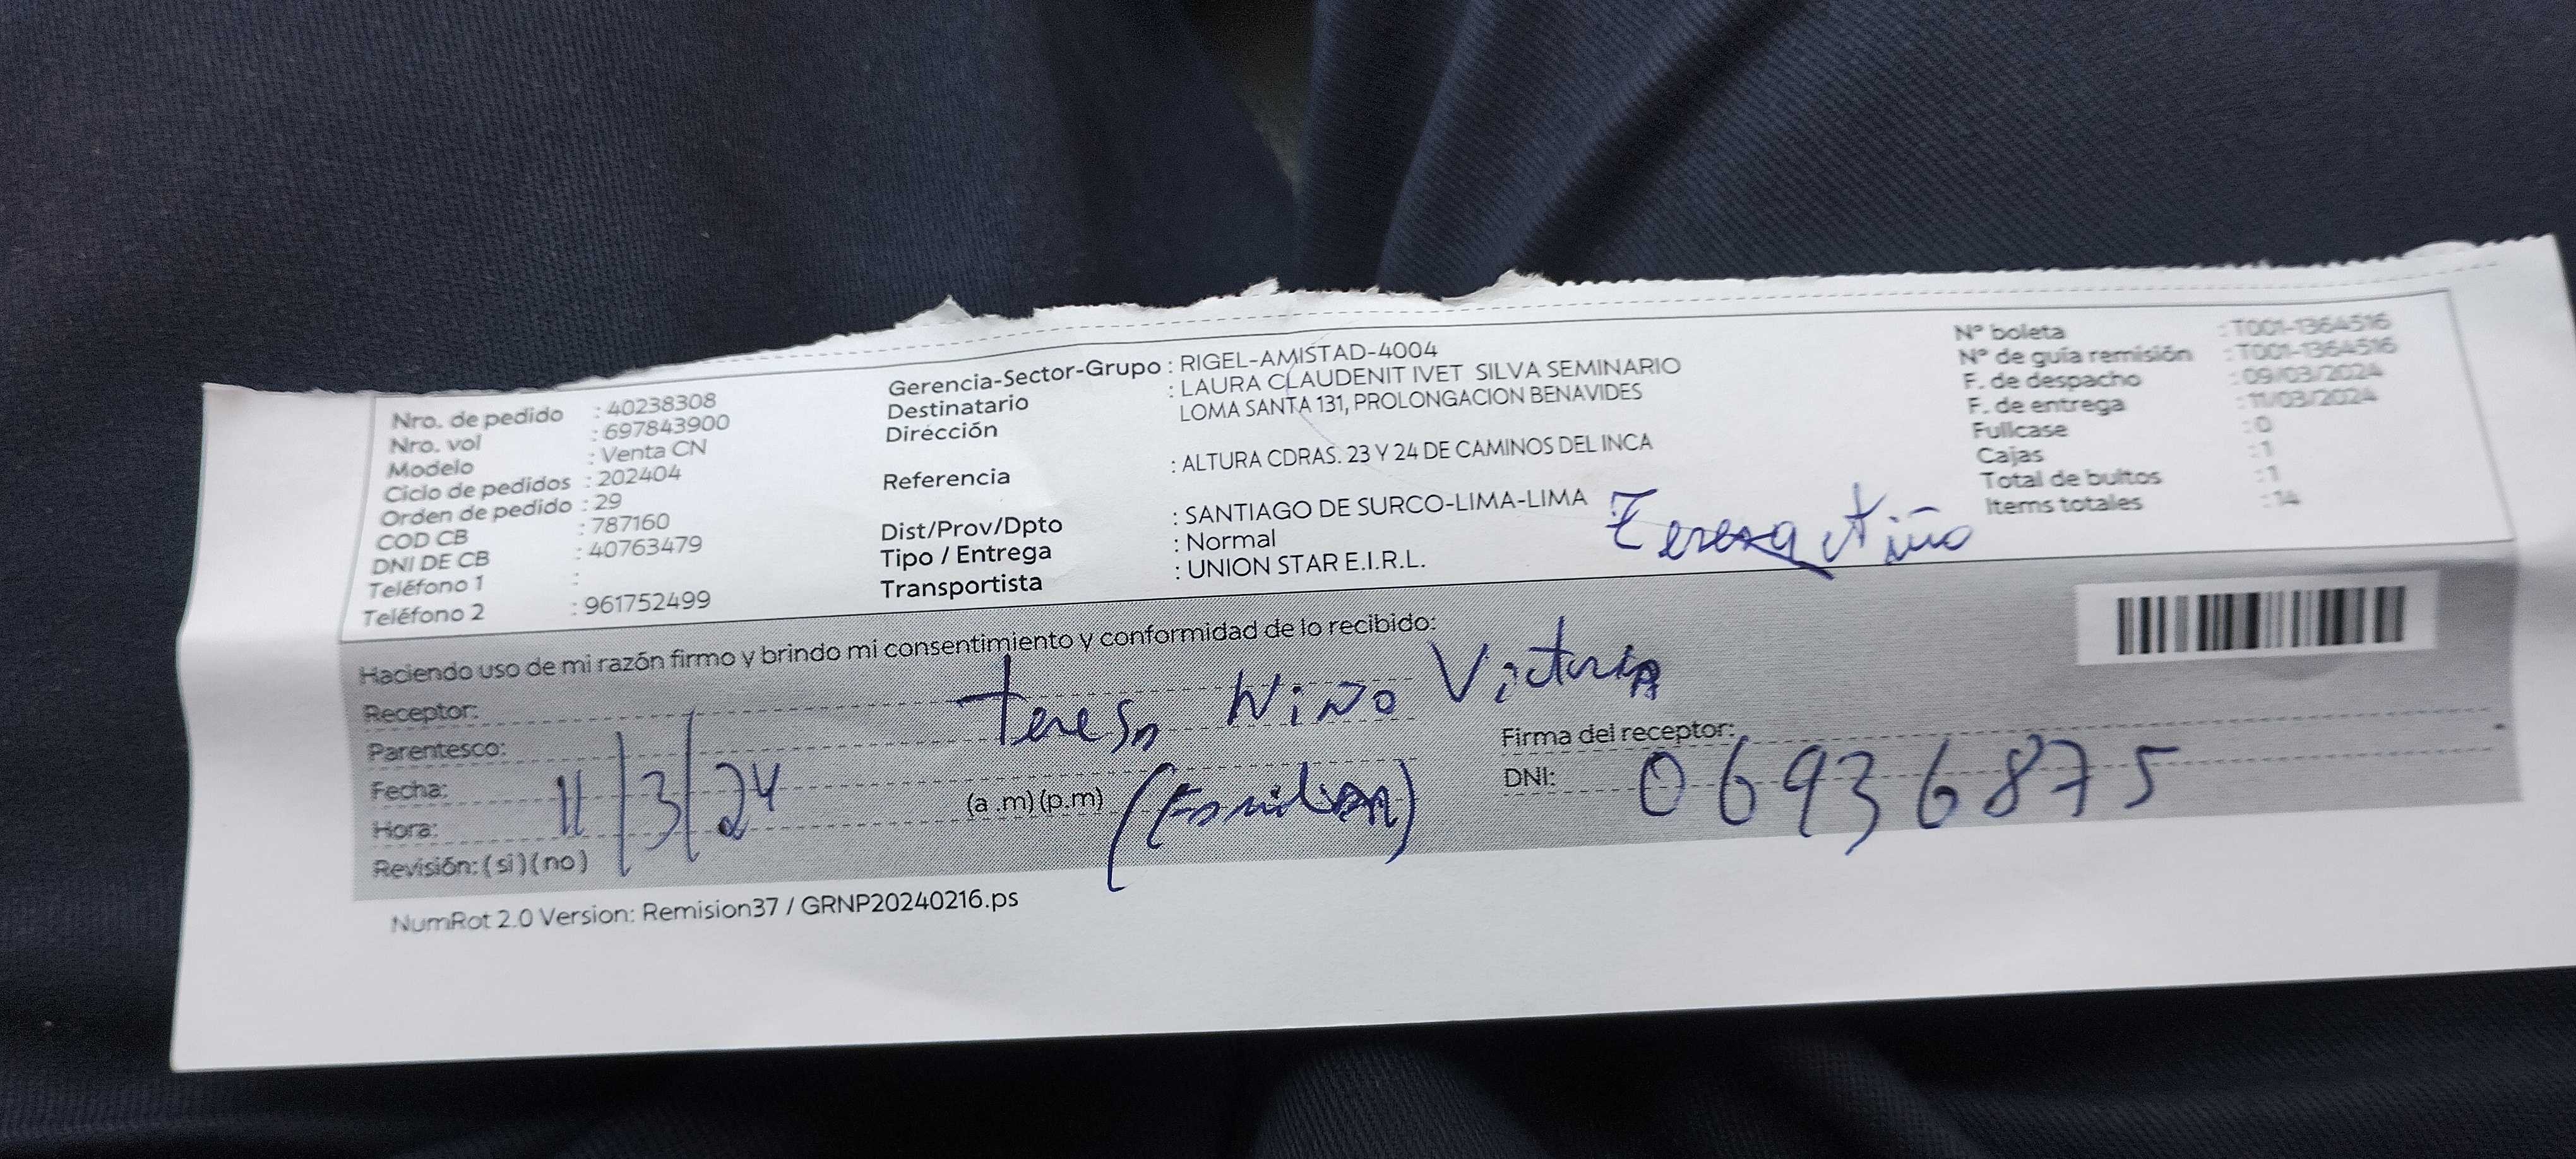 Nro. de pedido : 40238308
Nro. vol : 697843900
Modelo : Venta CN
Ciclo de pedidos : 202404
Orden de pedido : 29
COD CB : 787160
DNI DE CB : 40763479
Teléfono 1 :
Teléfono 2 : 961752499
Gerencia-Sector-Grupo : RIGEL-AMISTAD-4004
Destinatario : LAURA CLAUDENIT IVET SILVA SEMINARIO
Dirección LOMA SANTA 131, PROLONGACION BENAVIDES
Referencia : ALTURA CDRAS. 23 Y 24 DE CAMINOS DEL INCA
Dist/Prov/Dpto : SANTIAGO DE SURCO-LIMA-LIMA
Tipo / Entrega : Normal
Transportista : UNION STAR E.I.R.L.
Nº boleta : T001-1364516
Nº de guía remisión : T001-1364516
F. de despacho : 09/03/2024
F. de entrega : 11/03/2024
Fullcase : 0
Cajas : 1
Total de bultos : 1
Items totales : 14
Teresa Niño
Haciendo uso de mi razón firmo y brindo mi consentimiento y conformidad de lo recibido:
Receptor: Teresa Niño Victoria
Parentesco:
Fecha: 11/3/24
Hora: (a .m)(p.m) (Familiar)
Revisión: (si)(no)
Firma del receptor:
DNI: 06936875
NumRot 2.0 Version: Remision37 / GRNP20240216.ps